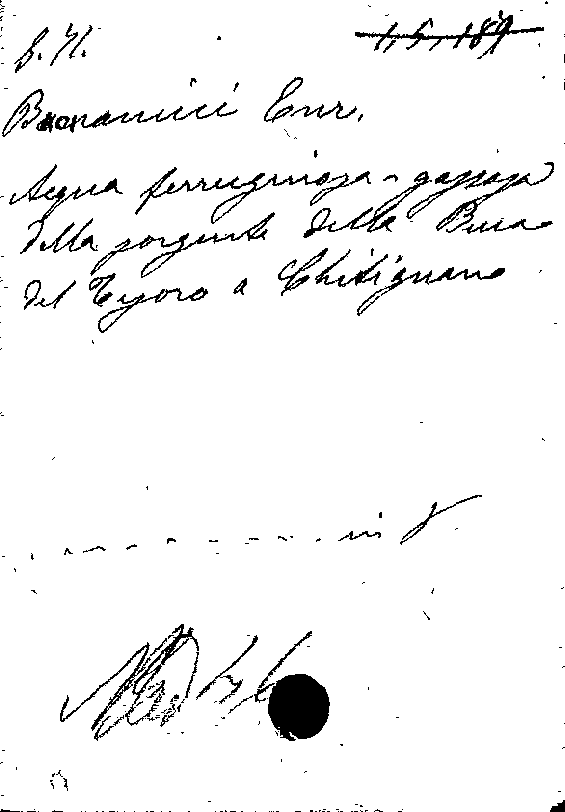 1,5,189
Buonamici Enr.
Acqua ferruginosa-gassosa
della sorgente della Buca
del Tesoro a Chitignano
in